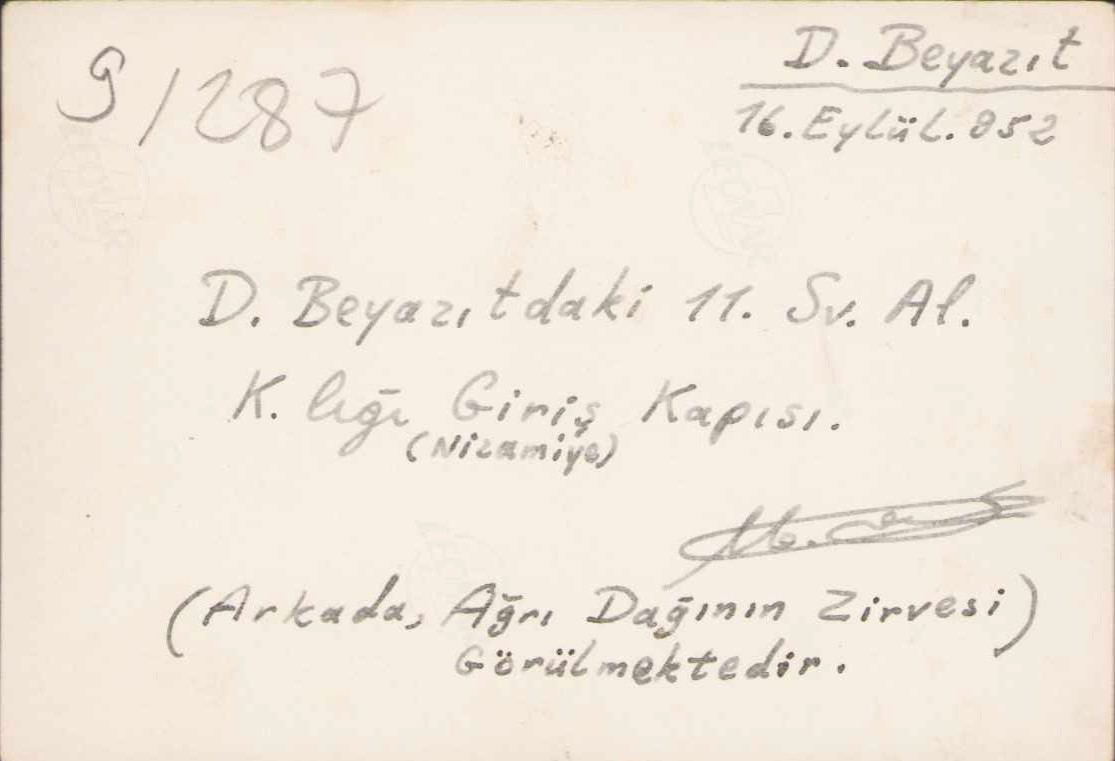 9/287
D. Beyazıt
16.Eylül.952
D. Beyazıtdaki 11. Sv. Al.
K. lığı Giriş Kapısı.
(Nizamiye)
(Arkada, Ağrı Dağının Zirvesi)
Görülmektedir.